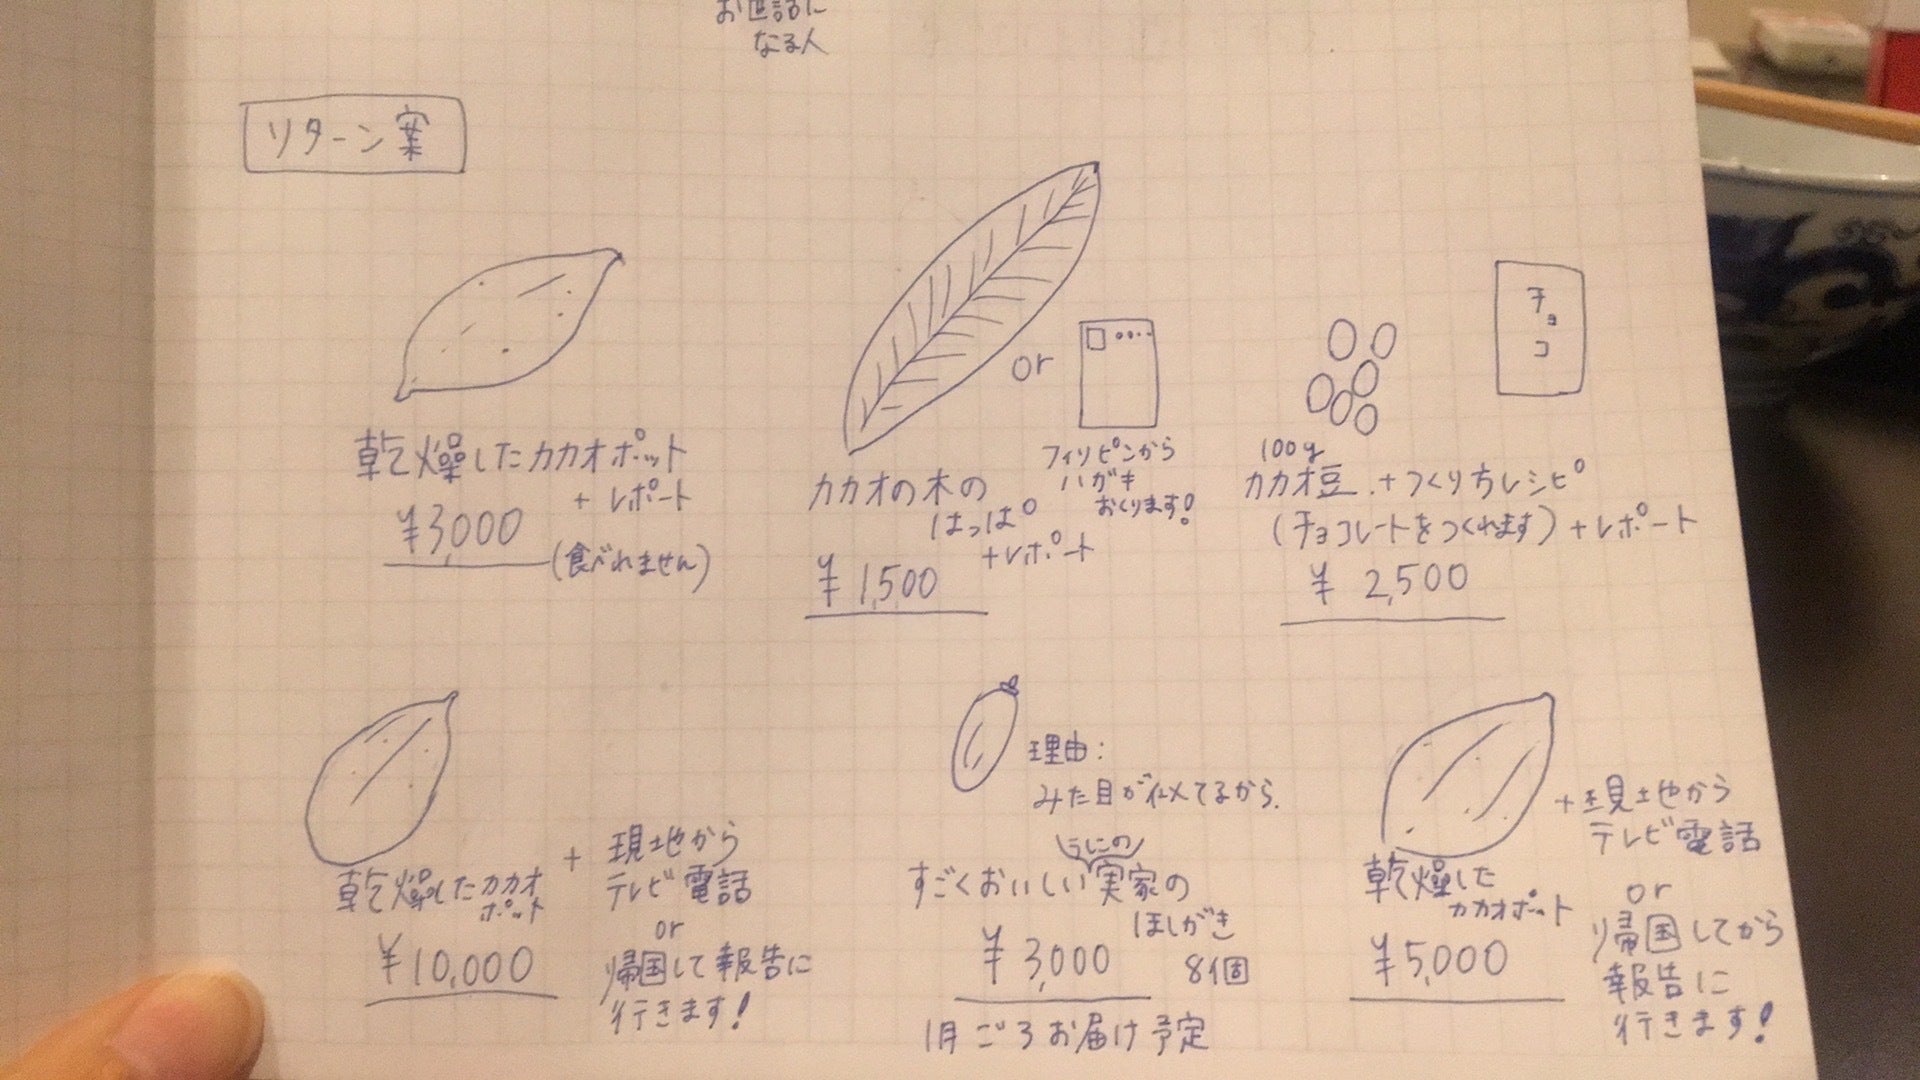 お世話に
なる人
リターン案
乾燥したカカオポット
+ レポート
¥3,000
(食べれません)
or
カカオの木の
はっぱ
+レポート
¥ 1,500
フィリピンから
ハガキ
おくります!
チョコ
100g
カカオ豆 + つくり方レシピ
(チョコレートをつくれます) + レポート
¥ 2,500
乾燥したカカオ
ポット
¥10,000
+ 現地から
テレビ電話
or
帰国して報告に
行きます!
理由:
みた目が似てるから.
すごくおいしい実家の
ほしがき
¥ 3,000
8個
1月ごろお届け予定
乾燥した
カカオポット
¥5,000
+ 現地から
テレビ電話
or
帰国してから
報告に
行きます!